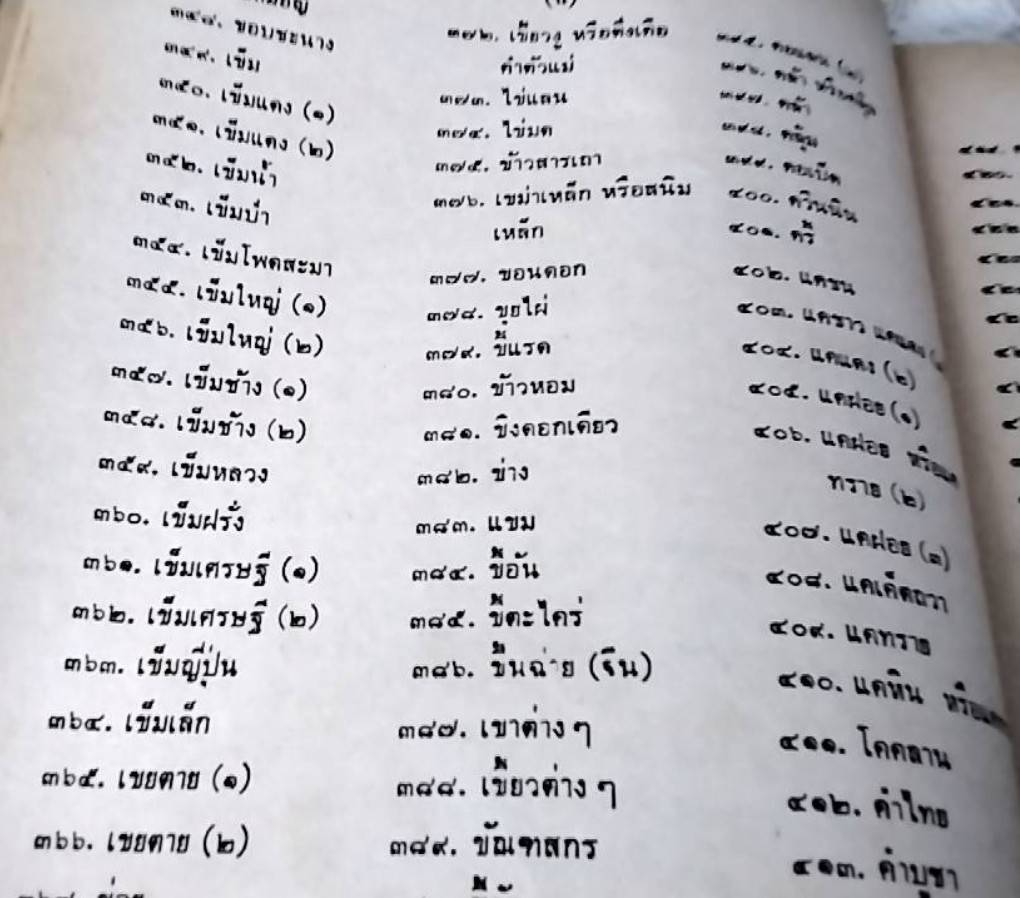 ๓๔๘. ขอบชะนาง
๓๔๙. เข็ม
๓๕๐. เข็มแดง (๑)
๓๕๑. เข็มแดง (๒)
๓๕๒. เข็มน้ำ
๓๕๓. เข็มป่า
๓๕๔. เข็มโพดสะมา
๓๕๕. เข็มใหญ่ (๑)
๓๕๖. เข็มใหญ่ (๒)
๓๕๗. เข็มช้าง (๑)
๓๕๘. เข็มช้าง (๒)
๓๕๙. เข็มหลวง
๓๖๐. เข็มฝรั่ง
๓๖๑. เข็มเศรษฐี (๑)
๓๖๒. เข็มเศรษฐี (๒)
๓๖๓. เข็มญี่ปุ่น
๓๖๔. เข็มเล็ก
๓๖๕. เขยตาย (๑)
๓๖๖. เขยตาย (๒)
๓๗๒. เขี้ยวงู หรือดีงูเดือ
คำตัวแม่
๓๗๓. ไข่แลน
๓๗๔. ไข่มด
๓๗๕. ข้าวสารเถา
๓๗๖. เขม่าเหล็ก หรือสนิม
เหล็ก
๓๗๗. ขอนดอก
๓๗๘. ขุยไผ่
๓๗๙. ขี้แรด
๓๘๐. ข้าวหอม
๓๘๑. ขิงดอกเดียว
๓๘๒. ข่าง
๓๘๓. แขม
๓๘๔. ขี้อ้น
๓๘๕. ขี้ตะไคร่
๓๘๖. ขึ้นฉ่าย (จีน)
๓๘๗. เขาต่าง ๆ
๓๘๘. เขี้ยวต่าง ๆ
๓๘๙. ขัณฑสกร
๓๙๕.
๓๙๖. คล้า
๓๙๗. คล้า
๓๙๘. คลุ้ม
๓๙๙. คอเป็ด
๔๐๐. ควินนิน
๔๐๑. ครี้
๔๐๒. แคขน
๔๐๓. แคขาว แคแดง
๔๐๔. แคแดง (๒)
๔๐๕. แคฝอย (๑)
๔๐๖. แคฝอย หรือแค
ทราย (๒)
๔๐๗. แคฝอย (๓)
๔๐๘. แคเค็ดถวา
๔๐๙. แคทราย
๔๑๐. แคหิน หรือแค
๔๑๑. โคคลาน
๔๑๒. คำไทย
๔๑๓. คำบูชา
๔๑๙.
๔๒๐.
๔๒๑.